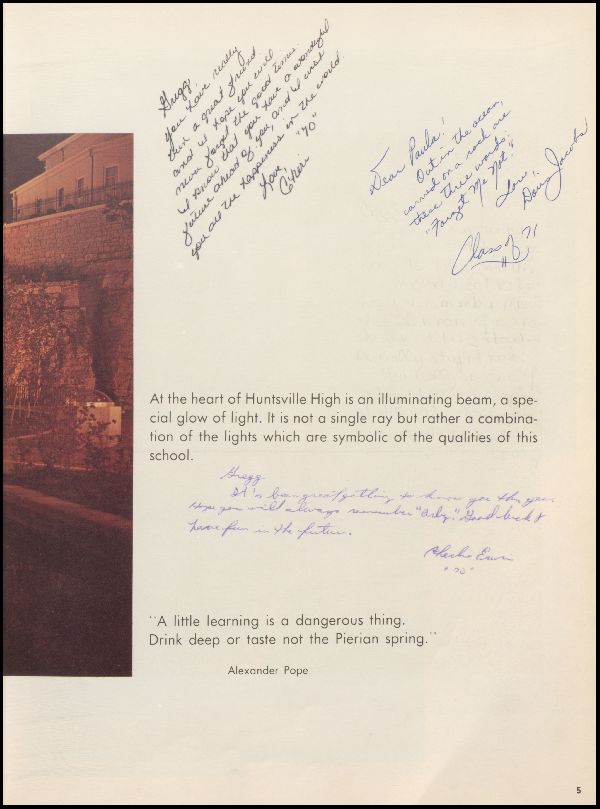 Gregg,
You have really
been a great friend
and I hope you will
never forget the good times.
I know that you have a wonderful
future ahead of you, and I wish
you all the happiness in the world.
Love,
Cheri
"70"
Dear Paula!
Out in the ocean,
carved on a rock are
these three words:
"Forget Me Not."
Love,
Doug Jacobs
Class of 71
At the heart of Huntsville High is an illuminating beam, a spe-
cial glow of light. It is not a single ray but rather a combina-
tion of the lights which are symbolic of the qualities of this
school.
Gregg
It's been great getting to know you this year.
Hope you will always remember Good luck &
have fun in the future.
"70"
"A little learning is a dangerous thing.
Drink deep or taste not the Pierian spring."
Alexander Pope
5